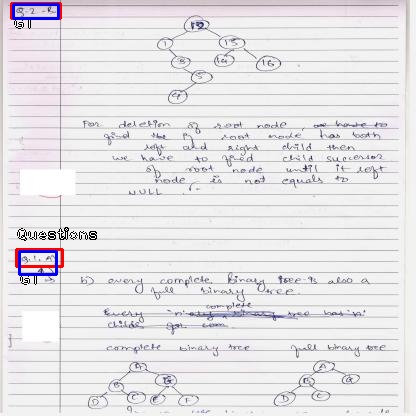 Q-2-B
GT
12
1 15
3 14 16
5
4
For deletion of root node, we have to
find the if root node has both
left and right child then
we have to find child successor
of root node until it left
node is not equals to
NULL.
Questions
Q.1. A
GT
b) every complete binary tree is also a
full binary tree.
complete
Every binary tree has
childs
complete binary tree full binary tree
A A
B B C
D C E F D C